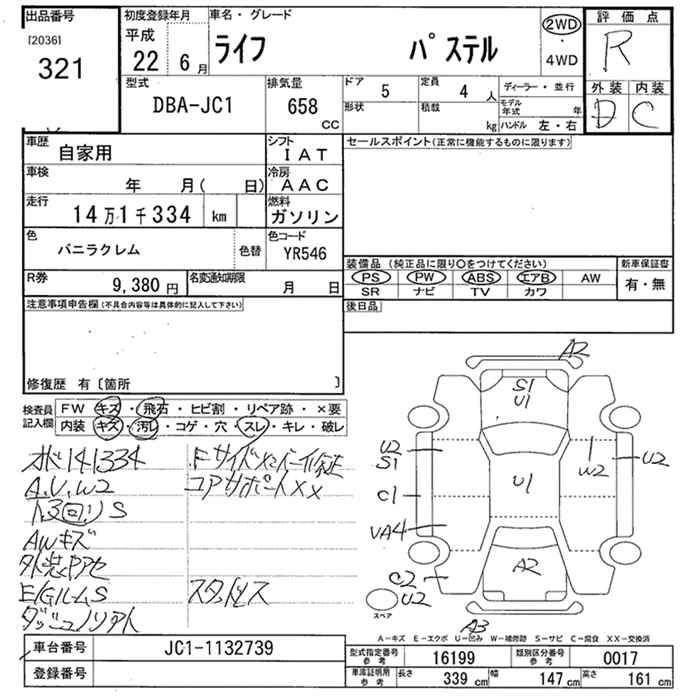 出品番号
[2036]
321
初度登録年月
平成
22 6月
車名・グレード
ライフ パステル
2WD
・
4WD
評価点
R
外装 内装
D C
型式
DBA-JC1
排気量
658
CC
ドア
5
定員
4 人
形状
積載
kg
ディーラー・並行
モデル年式 年
ハンドル 左・右
車歴
自家用
シフト
IAT
車検
年 月( 日)
冷房
AAC
走行
14万1千334 km
燃料
ガソリン
色
バニラクレム
色替
色コード
YR546
R券
9,380円
名変通知期限
月 日
セールスポイント(正常に機能するものに限ります)
装備品(純正品に限り○をつけてください)
PS PW ABS エアB AW
SR ナビ TV カワ
新車保証書
有・無
後日品
注意事項申告欄(不具合内容等は具体的に記入して下さい)
修復歴 有〔箇所 〕
検査員記入欄
FW キズ・飛石・ヒビ割・リペア跡・×要
内装 キズ・汚レ・コゲ・穴・スレ・キレ・破レ
141334
A,U,W2
S
AWキズ
コアサポートXX
A2
S1
U1
U2
S1
C1
VA4
C2
U2
U1
W2
U2
A2
A3
スペア
A-キズ E-エクボ U-凹み W-補修跡 S-サビ C-腐食 XX-交換済
車台番号
JC1-1132739
登録番号
型式指定番号
参考
16199
類別区分番号
参考
0017
車庫証明用
参考
長さ
339 cm
幅
147 cm
高さ
161 cm